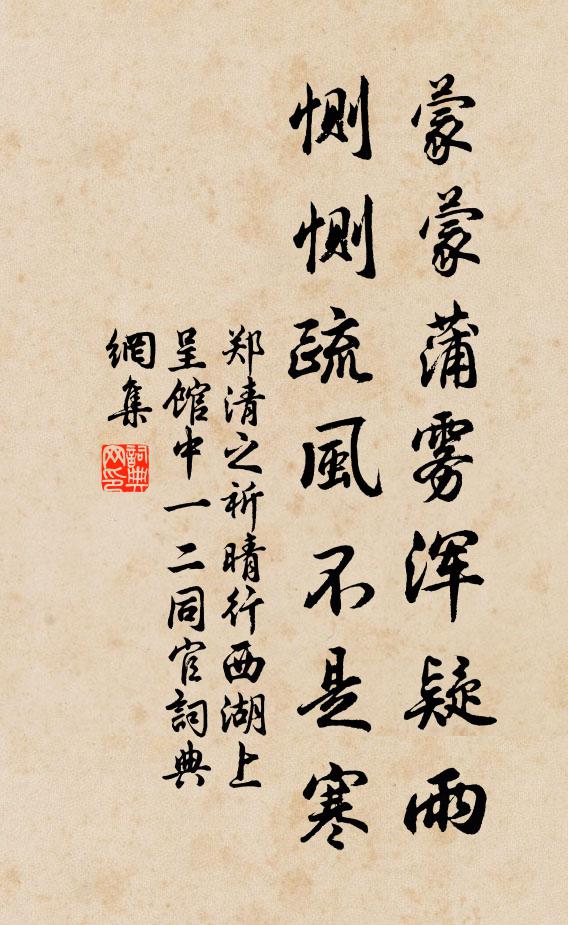 蒙蒙蒲雾浑疑雨
恻恻疏風不是寒
郑清之祈晴行西湖上
呈馆中一二同官詞典
網集
詞典
网印